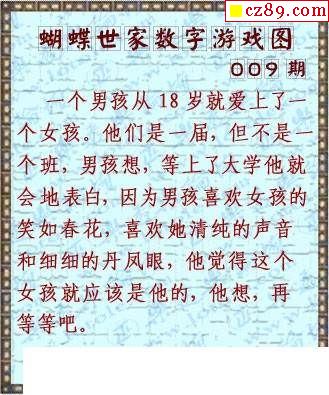 cz89.com
蝴蝶世家数字游戏图
009 期
一个男孩从 18 岁就爱上了一
个女孩。他们是一届，但不是一
个班，男孩想，等上了大学他就
会地表白，因为男孩喜欢女孩的
笑如春花，喜欢她清纯的声音
和细细的丹凤眼，他觉得这个
女孩就应该是他的，他想，再
等等吧。